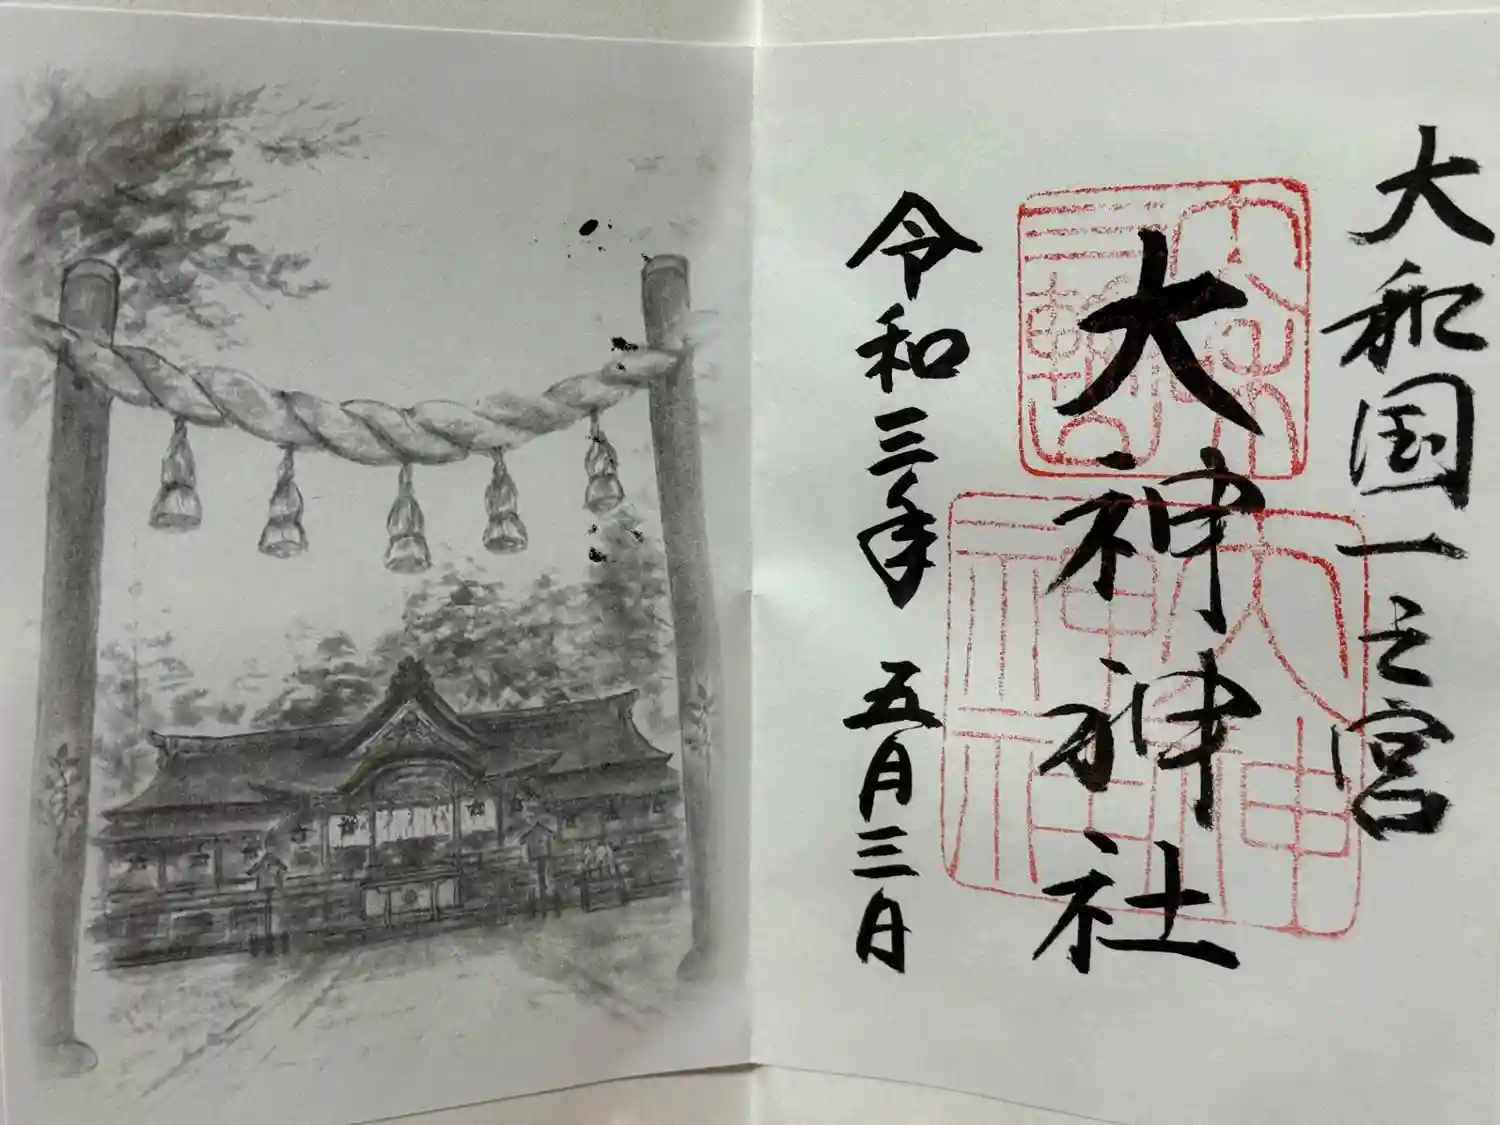 大和国一之宮
大神神社
令和三年 五月三日
大神神社